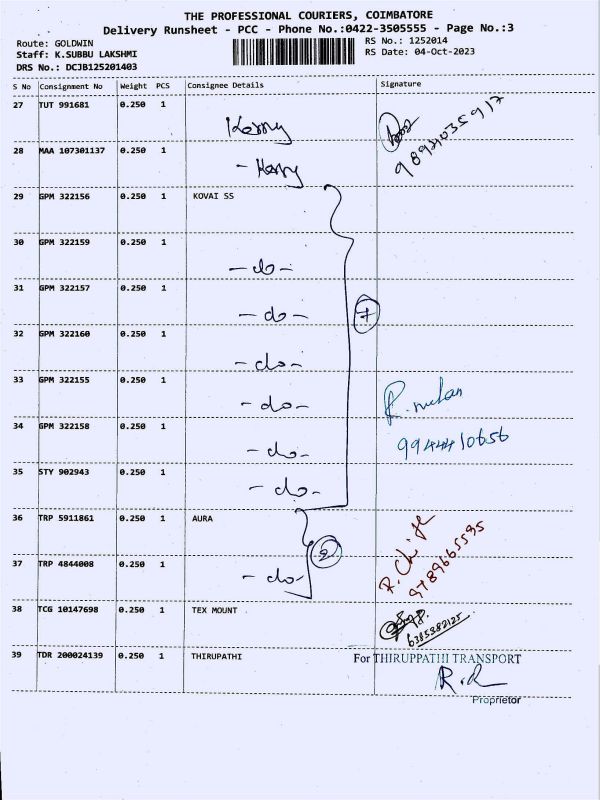 THE PROFESSIONAL COURIERS, COIMBATORE
Delivery Runsheet - PCC - Phone No.:0422-3505555 - Page No.:3
Route: GOLDWIN
RS No.: 1252014
Staff: K.SUBBU LAKSHMI
RS Date: 04-Oct-2023
DRS No.: DCJB125201403
S No Consignment No Weight PCS Consignee Details Signature
27 TUT 991681 0.250 1
9894035917
28 MAA 107301137 0.250 1
29 GPM 322156 0.250 1 KOVAI SS
30 GPM 322159 0.250 1 -do-
31 GPM 322157 0.250 1 -do-
7
32 GPM 322160 0.250 1 -do-
33 GPM 322155 0.250 1 -do-
34 GPM 322158 0.250 1 -do-
9944410656
35 STY 902943 0.250 1 -do-
36 TRP 5911861 0.250 1 AURA
2
37 TRP 4844008 0.250 1 -do-
9789665595
38 TCG 10147698 0.250 1 TEX MOUNT
6385382125
39 TDR 200024139 0.250 1 THIRUPATHI
For THIRUPPATHI TRANSPORT
Proprietor